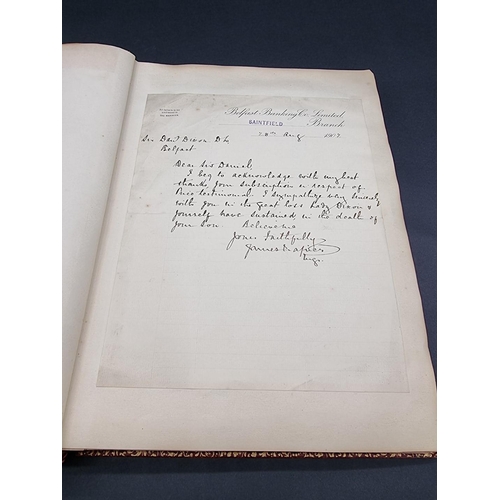 Belfast Banking Co. Limited
SAINTFIELD Branch
28th Aug 190
Sir Danl Dixon D L
Belfast
Dear Sir Daniel
I beg to acknowledge with my best
thanks your subscription in respect of
Price testimonial. I sympathise very sincerely
with you in the great loss Lady Dixon &
yourself have sustained in the death of
your son Believe me
Yours faithfully
James